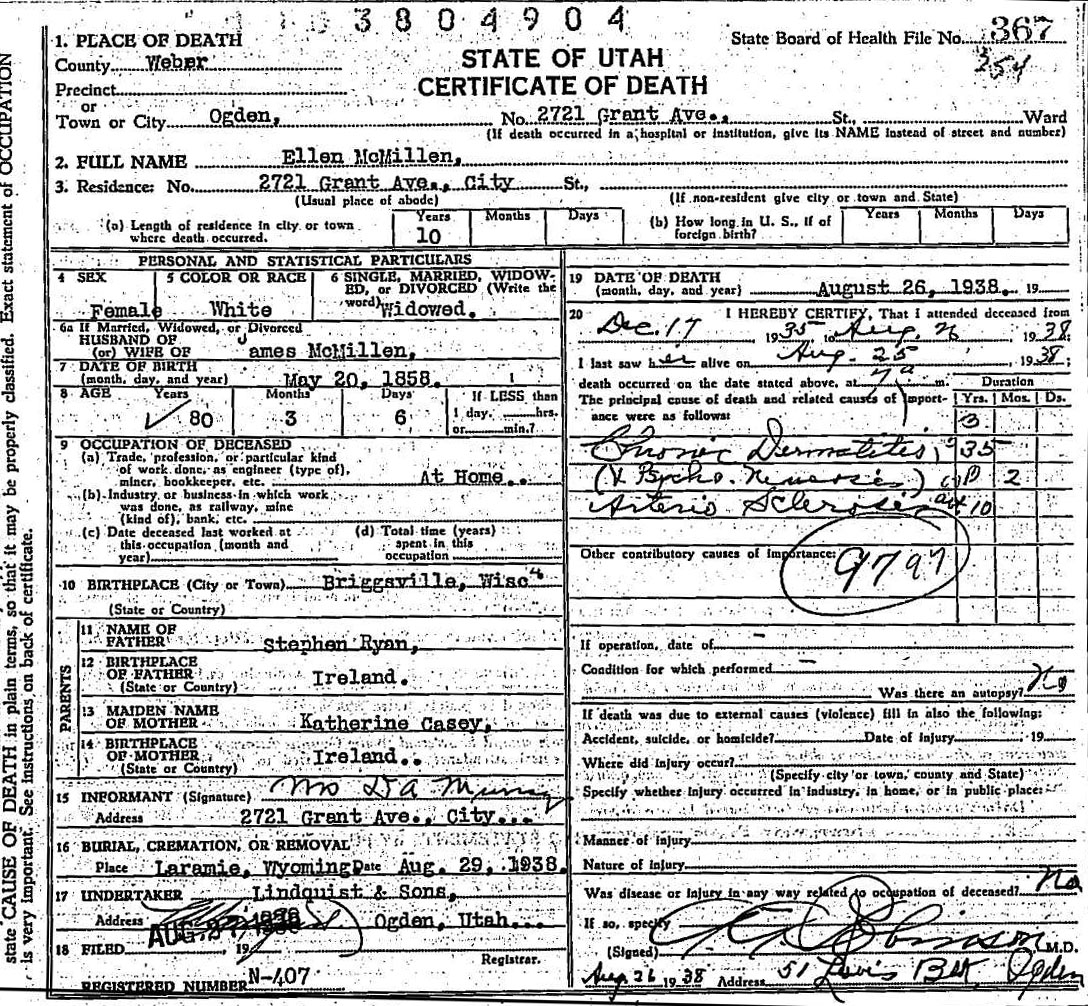 3804904
1. PLACE OF DEATH
State Board of Health File No. 367
354
County Weber
STATE OF UTAH
CERTIFICATE OF DEATH
Precinct
or
Town or City Ogden, No. 2721 Grant Ave., St., Ward
(If death occurred in a hospital or institution, give its NAME instead of street and number)
2. FULL NAME Ellen McMillen,
3. Residence: No. 2721 Grant Ave., City St.,
(Usual place of abode) (If non-resident give city or town and State)
(a) Length of residence in city or town where death occurred. Years 10 Months Days
(b) How long in U. S., if of foreign birth? Years Months Days
PERSONAL AND STATISTICAL PARTICULARS
4 SEX Female
5 COLOR OR RACE White
6 SINGLE, MARRIED, WIDOWED, OR DIVORCED (Write the word) Widowed.
6a If Married, Widowed, or Divorced
HUSBAND OF
(or) WIFE OF James McMillen,
7 DATE OF BIRTH
(month, day, and year) May 20, 1858.
8 AGE Years 80 Months 3 Days 6 If LESS than 1 day, hrs. or min.?
9 OCCUPATION OF DECEASED
(a) Trade, profession, or particular kind
of work done, as engineer (type of),
miner, bookkeeper, etc. At Home..
(b) Industry or business in which work
was done, as railway, mine
(kind of), bank, etc.
(c) Date deceased last worked at
this occupation (month and
year)
(d) Total time (years)
spent in this
occupation
10 BIRTHPLACE (City or Town) Briggsville, Wisc
(State or Country)
PARENTS
11 NAME OF
FATHER Stephen Ryan,
12 BIRTHPLACE
OF FATHER Ireland.
(State or Country)
13 MAIDEN NAME
OF MOTHER Katherine Casey,
14 BIRTHPLACE
OF MOTHER Ireland..
(State or Country)
15 INFORMANT (Signature) Mrs D A Murray
Address 2721 Grant Ave., City...
16 BURIAL, CREMATION, OR REMOVAL
Place Laramie, Wyoming Date Aug. 29, 1938.
17 UNDERTAKER Lindquist & Sons,
Address Ogden, Utah...
18 FILED AUG 27 1938, 19
Registrar.
REGISTERED NUMBER N-407
19 DATE OF DEATH
(month, day, and year) August 26, 1938. 19
20 I HEREBY CERTIFY, That I attended deceased from
Dec. 17 1935 to Aug 26, 1938;
I last saw her alive on Aug. 25, 1938;
death occurred on the date stated above, at 7 a m.
Duration
The principal cause of death and related causes of importance were as follows: Yrs. Mos. Ds.
3
Chronic Dermatitis, 935
(& Psycho. Neurosis) 2
Arterio Sclerosis 10
Other contributory causes of importance:
9797
If operation, date of -
Condition for which performed -
Was there an autopsy? No
If death was due to external causes (violence) fill in also the following:
Accident, suicide, or homicide? Date of injury 19
Where did injury occur?
(Specify city or town, county and State)
Specify whether injury occurred in industry, in home, or in public place:
Manner of injury
Nature of injury
Was disease or injury in any way related to occupation of deceased? No
If so, specify
(Signed) Johnson M.D.
Aug 26 1938 Address Ogden
state CAUSE OF DEATH in plain terms, so that it may be properly classified. Exact statement of OCCUPATION
is very important. See instructions on back of certificate.